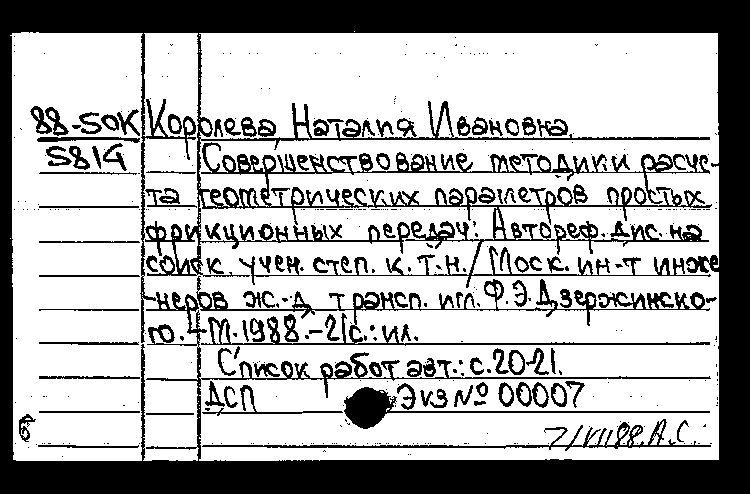 88-50К Королева, Наталия Ивановна.
5814 Совершенствование методики расче-
та геометрических параметров простых
фрикционных передач: Автореф. дис. на
соиск. учен. степ. к. т.н. / Моск. ин-т инже
-неров ж.-д. трансп. им. Ф.Э.Дзержинско-
го. - М. 1988. - 21с.: ил.
Список работ авт.: с.20-21.
ДСП Экз № 00007
7/VII88. А.С.